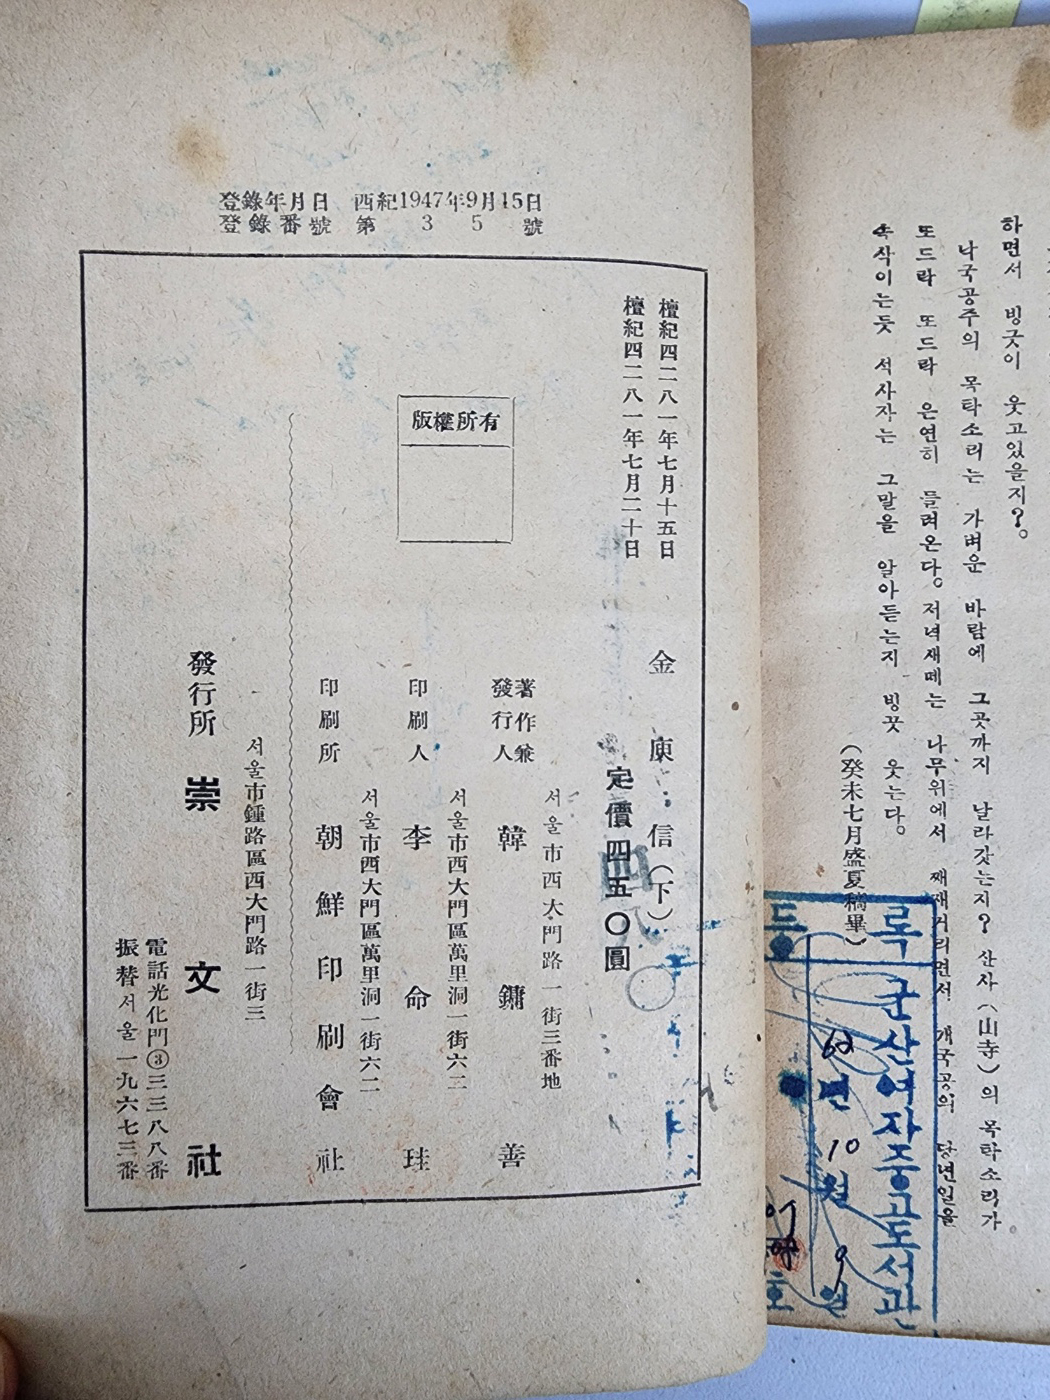 하면서 빙긋이 웃고있을지?。
낙국공주의 목탁소리는 가벼운 바람에 그곳까지 날라갓는지? 산사(山寺)의 목탁소리가
또드락 또드락 은연히 들려온다。저녁새떼는 나무위에서 째재거리면서 개국공의 당년일을
속삭이는듯 석사자는 그말을 알아듣는지 빙끗 웃는다。
(癸未七月盛夏稿畢)
등록
군산여자중고도서관
62년 10월 9일
호
登錄年月日 西紀1947年9月15日
登錄番號 第 3 5 號
檀紀四二八一年七月十五日
檀紀四二八一年七月二十日
金庾信(下)
定價四五〇圓
版權所有
서울市西大門路一街三番地
著作兼
發行人 韓鏞善
서울市西大門區萬里洞一街六二
印刷人 李命珪
서울市西大門區萬里洞一街六二
印刷所 朝鮮印刷會社
서울市鍾路區西大門路一街三
發行所 崇文社
電話光化門③三三八八番
振替서울一九六七三番